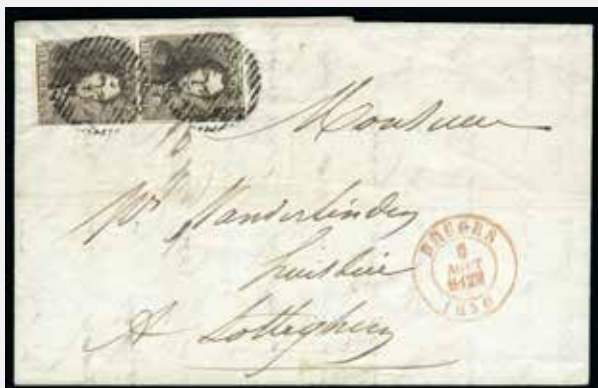 Monsieur
Vanderlinden
huissier
A Sotteghem
BRUGES
AOUT
1850